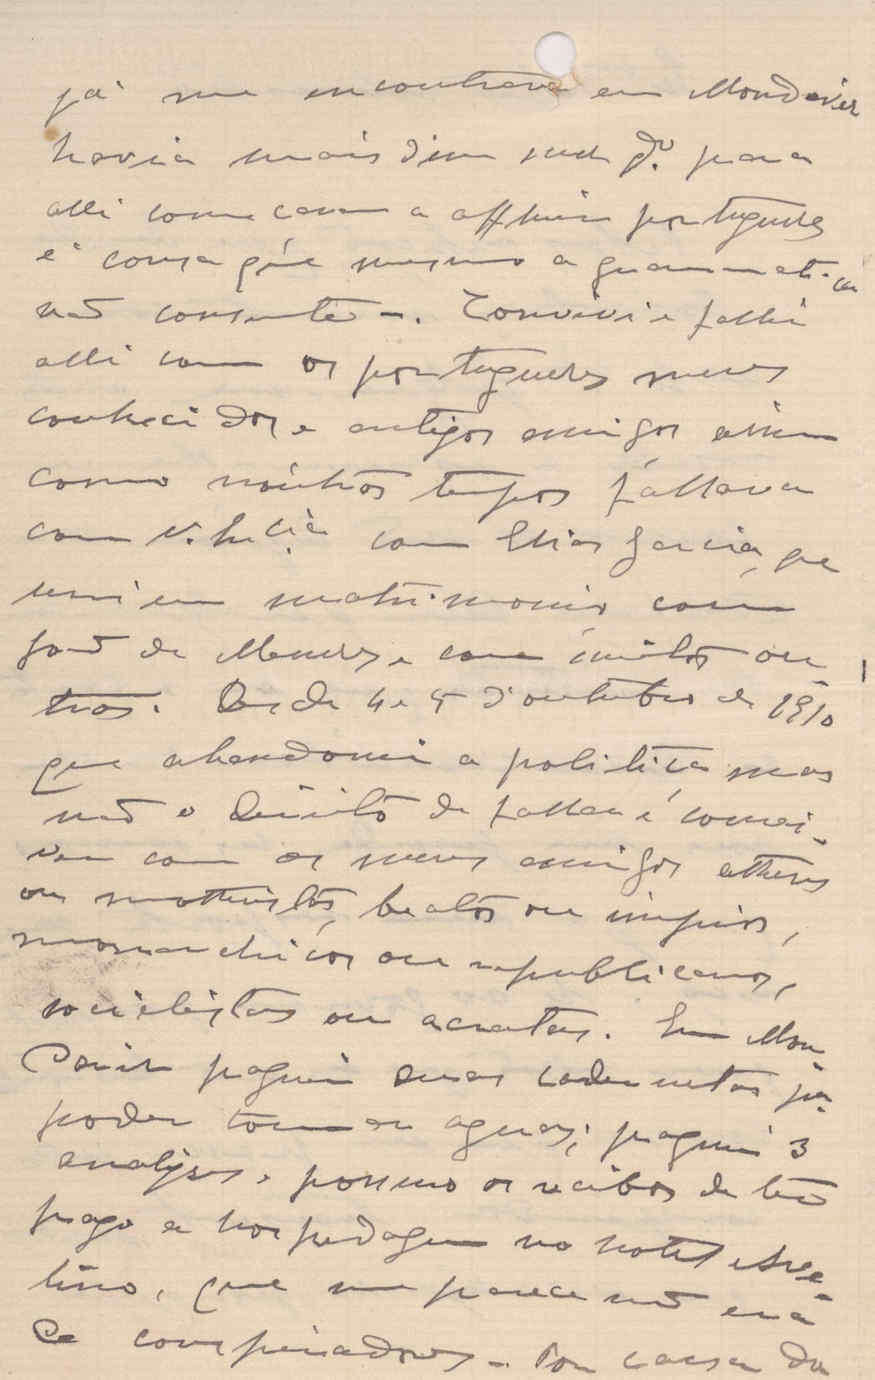 já me encontrava em Mondariz
havia mais d'um mez qdo para
alli começaram a affluir portuguezes
e cousa que mesmo a grammatica
não consente -. Convivi e fallei
alli com os portuguezes meus
conhecidos e antigos amigos assim
como n'outros tempos fallava
com V. Excia. com Elias Garcia, que
uni em matrimonio com
José de Menezes e com muitos ou
tros. Desde 4 e 5 d'outubro de 1910
que abandonei a politica mas
não o direito de fallar e convi-
ver com os meus amigos atheus
ou beatos ou impios,
monarchicos ou republicanos,
socialistas ou acratas. Em Mon
dariz paguei duas cadernetas pa.
poder tomar aguas; paguei 3
analyses, possuo os recibos de ter
pago a hospedagem no hotel Ave-
lino, que me parece não era
de conspiradores - Por causa da